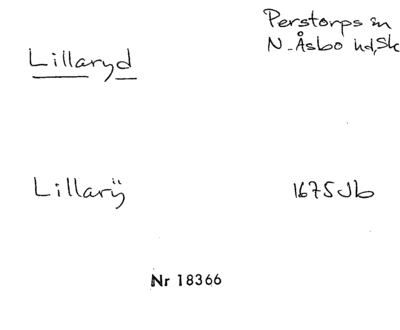 Perstorps sn
Lillaryd
N. Åsbo hd, Sk
Lillarÿ
1675 Jb
Nr 18366